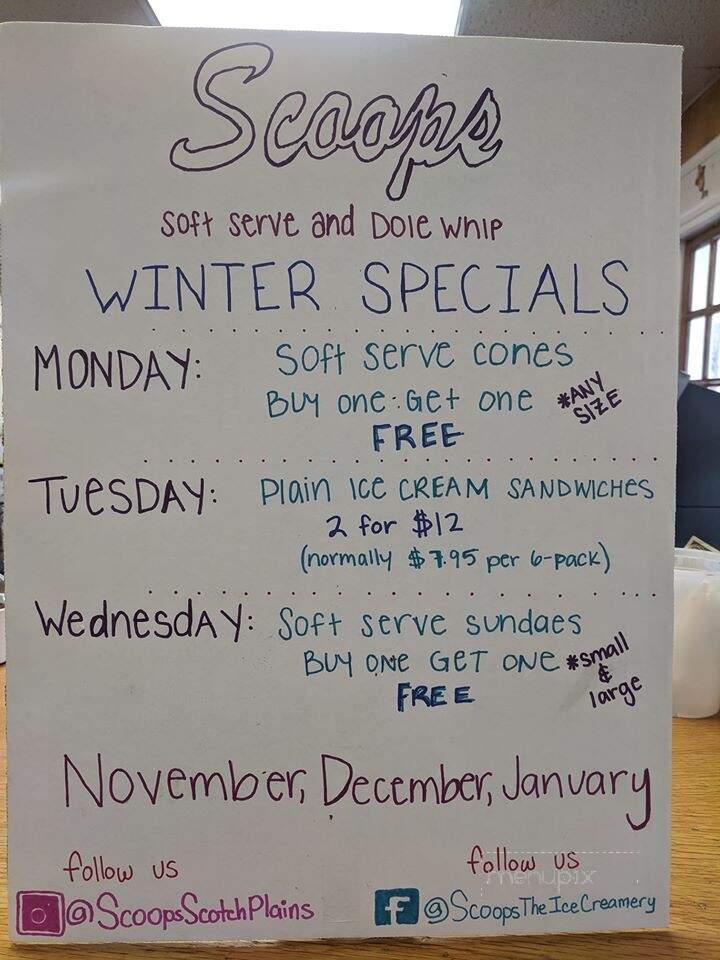 Scoops
Soft Serve and Dole Whip
WINTER SPECIALS
MONDAY: Soft Serve cones
Buy one Get one *ANY SIZE
FREE
TUESDAY: Plain ICE CREAM SANDWICHES
2 for $12
(normally $7.95 per 6-pack)
Wednesday: Soft serve sundaes
BUY ONE GET ONE *small & large
FREE
November, December, January
follow us
@ScoopsScotchPlains
follow us
f @ScoopsTheIceCreamery
menupix